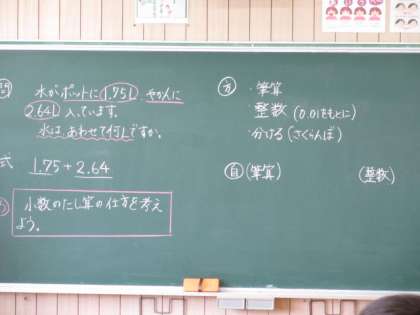 問 水がポットに1.75L、やかんに
2.64L入っています。
水はあわせて何Lですか。
式 1.75+2.64
小数のたし算の仕方を考え
よう。
方 ・筆算
整数(0.01をもとに)
・分ける(さくらんぼ)
自 (筆算) (整数)